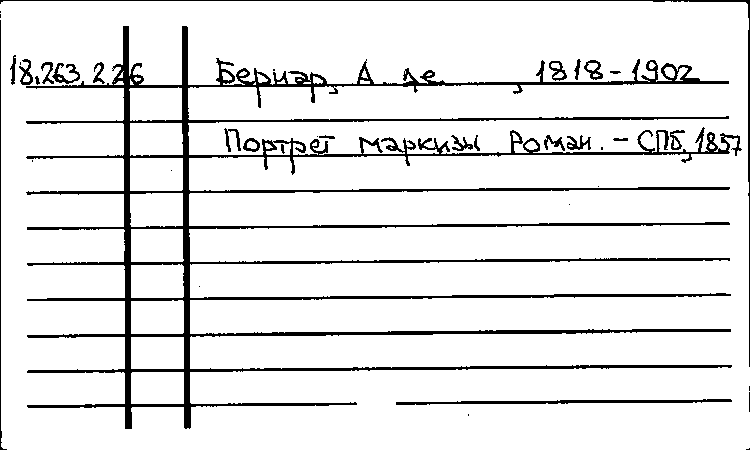 18.263.2.26 Бернар, А. де , 1818-1902
Портрет маркизы. Роман. - СПб, 1857